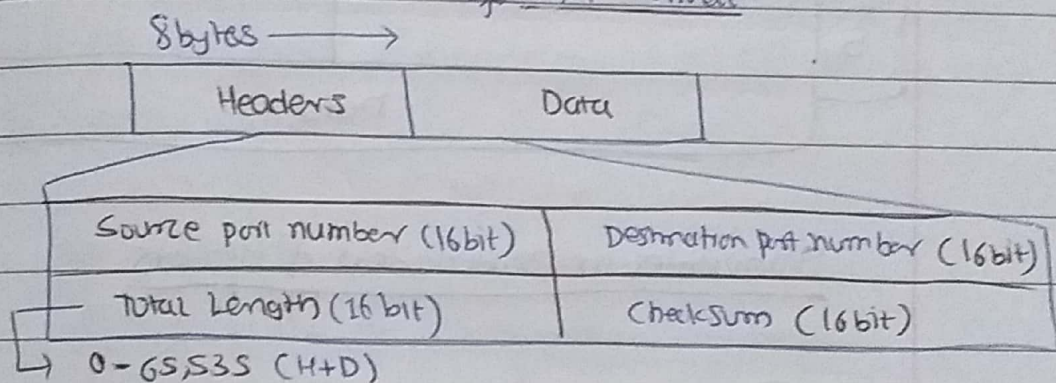 8bytes →
Headers Data
Source port number (16bit) Destination port number (16bit)
Total Length (16 bit) Checksum (16bit)
↳ 0-65,535 (H+D)